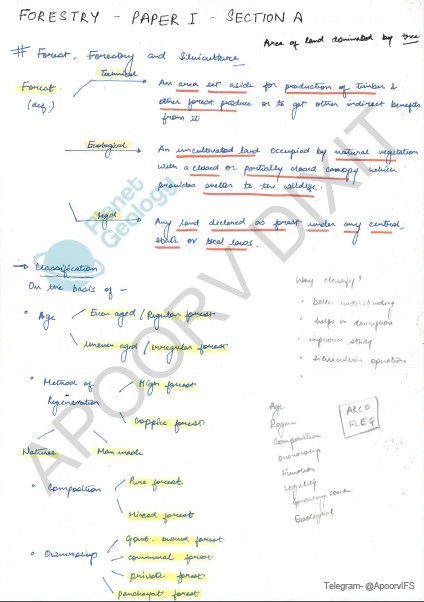 FORESTRY - PAPER I - SECTION A
Area of land dominated by tree
# Forest, Forestry and Silviculture
Forest (def.)
Technical
An area set aside for production of timber &
other forest produce or to get other indirect benefits
from it
Ecological
An uncultivated land occupied by natural vegetation
with a closed or partially closed canopy which
provides shelter to the wildlife.
legal
Any land declared as forest under any central,
state or local laws.
→ Classification
On the basis of -
• Age
Even aged / Regular forest
Uneven aged / Irregular forest
Why classify?
• better understanding
• helps in description
• improve study
• silviculture operation
•
• Method of Regeneration
High forest
Coppice forest
Natural
Man made
• Composition
Pure forest
Mixed forest
• Ownership
Govt. owned forest
communal forest
private forest
panchayat forest
Age
Regen
Composition
ownership
Function
Legality
Growing stock
Ecological
ARCO
FLEG
Planet
Geology
APOORV DIXIT
Telegram- @ApoorvIFS